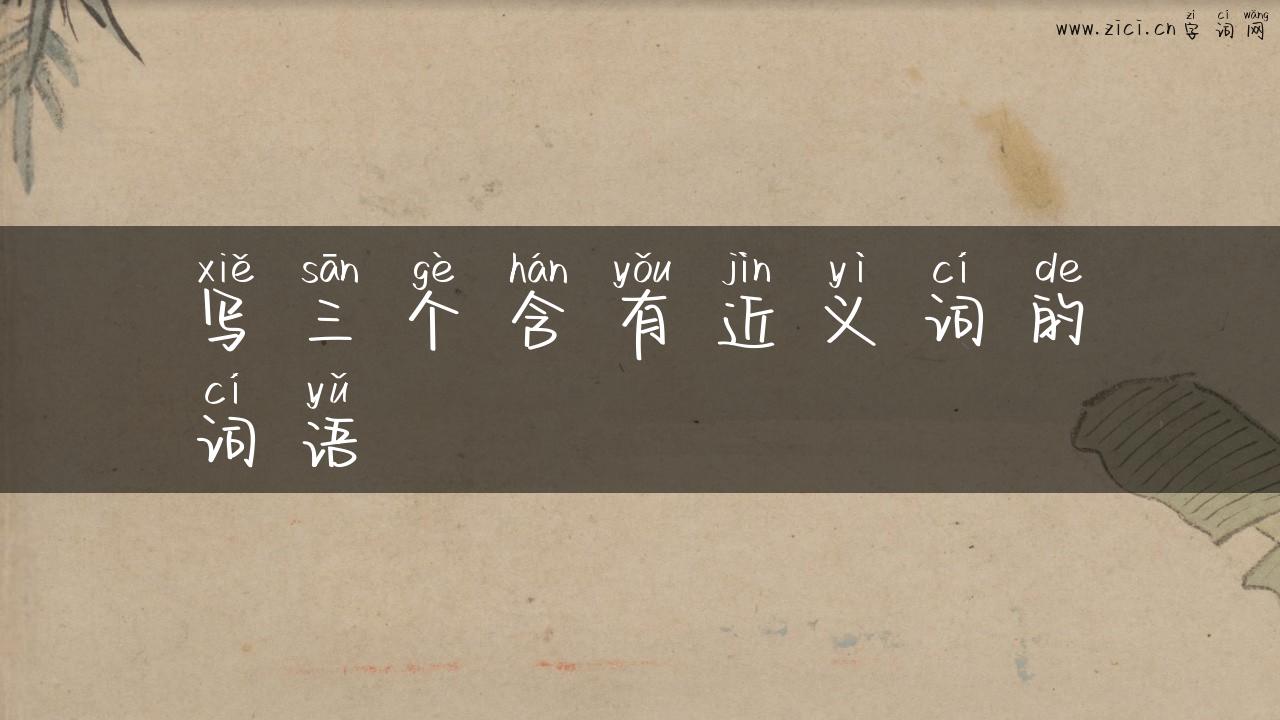 zì cí wǎng
www.zici.cn 字 词 网
xiě sān gè hán yǒu jìn yì cí de
写 三 个 含 有 近 义 词 的
cí yǔ
词 语